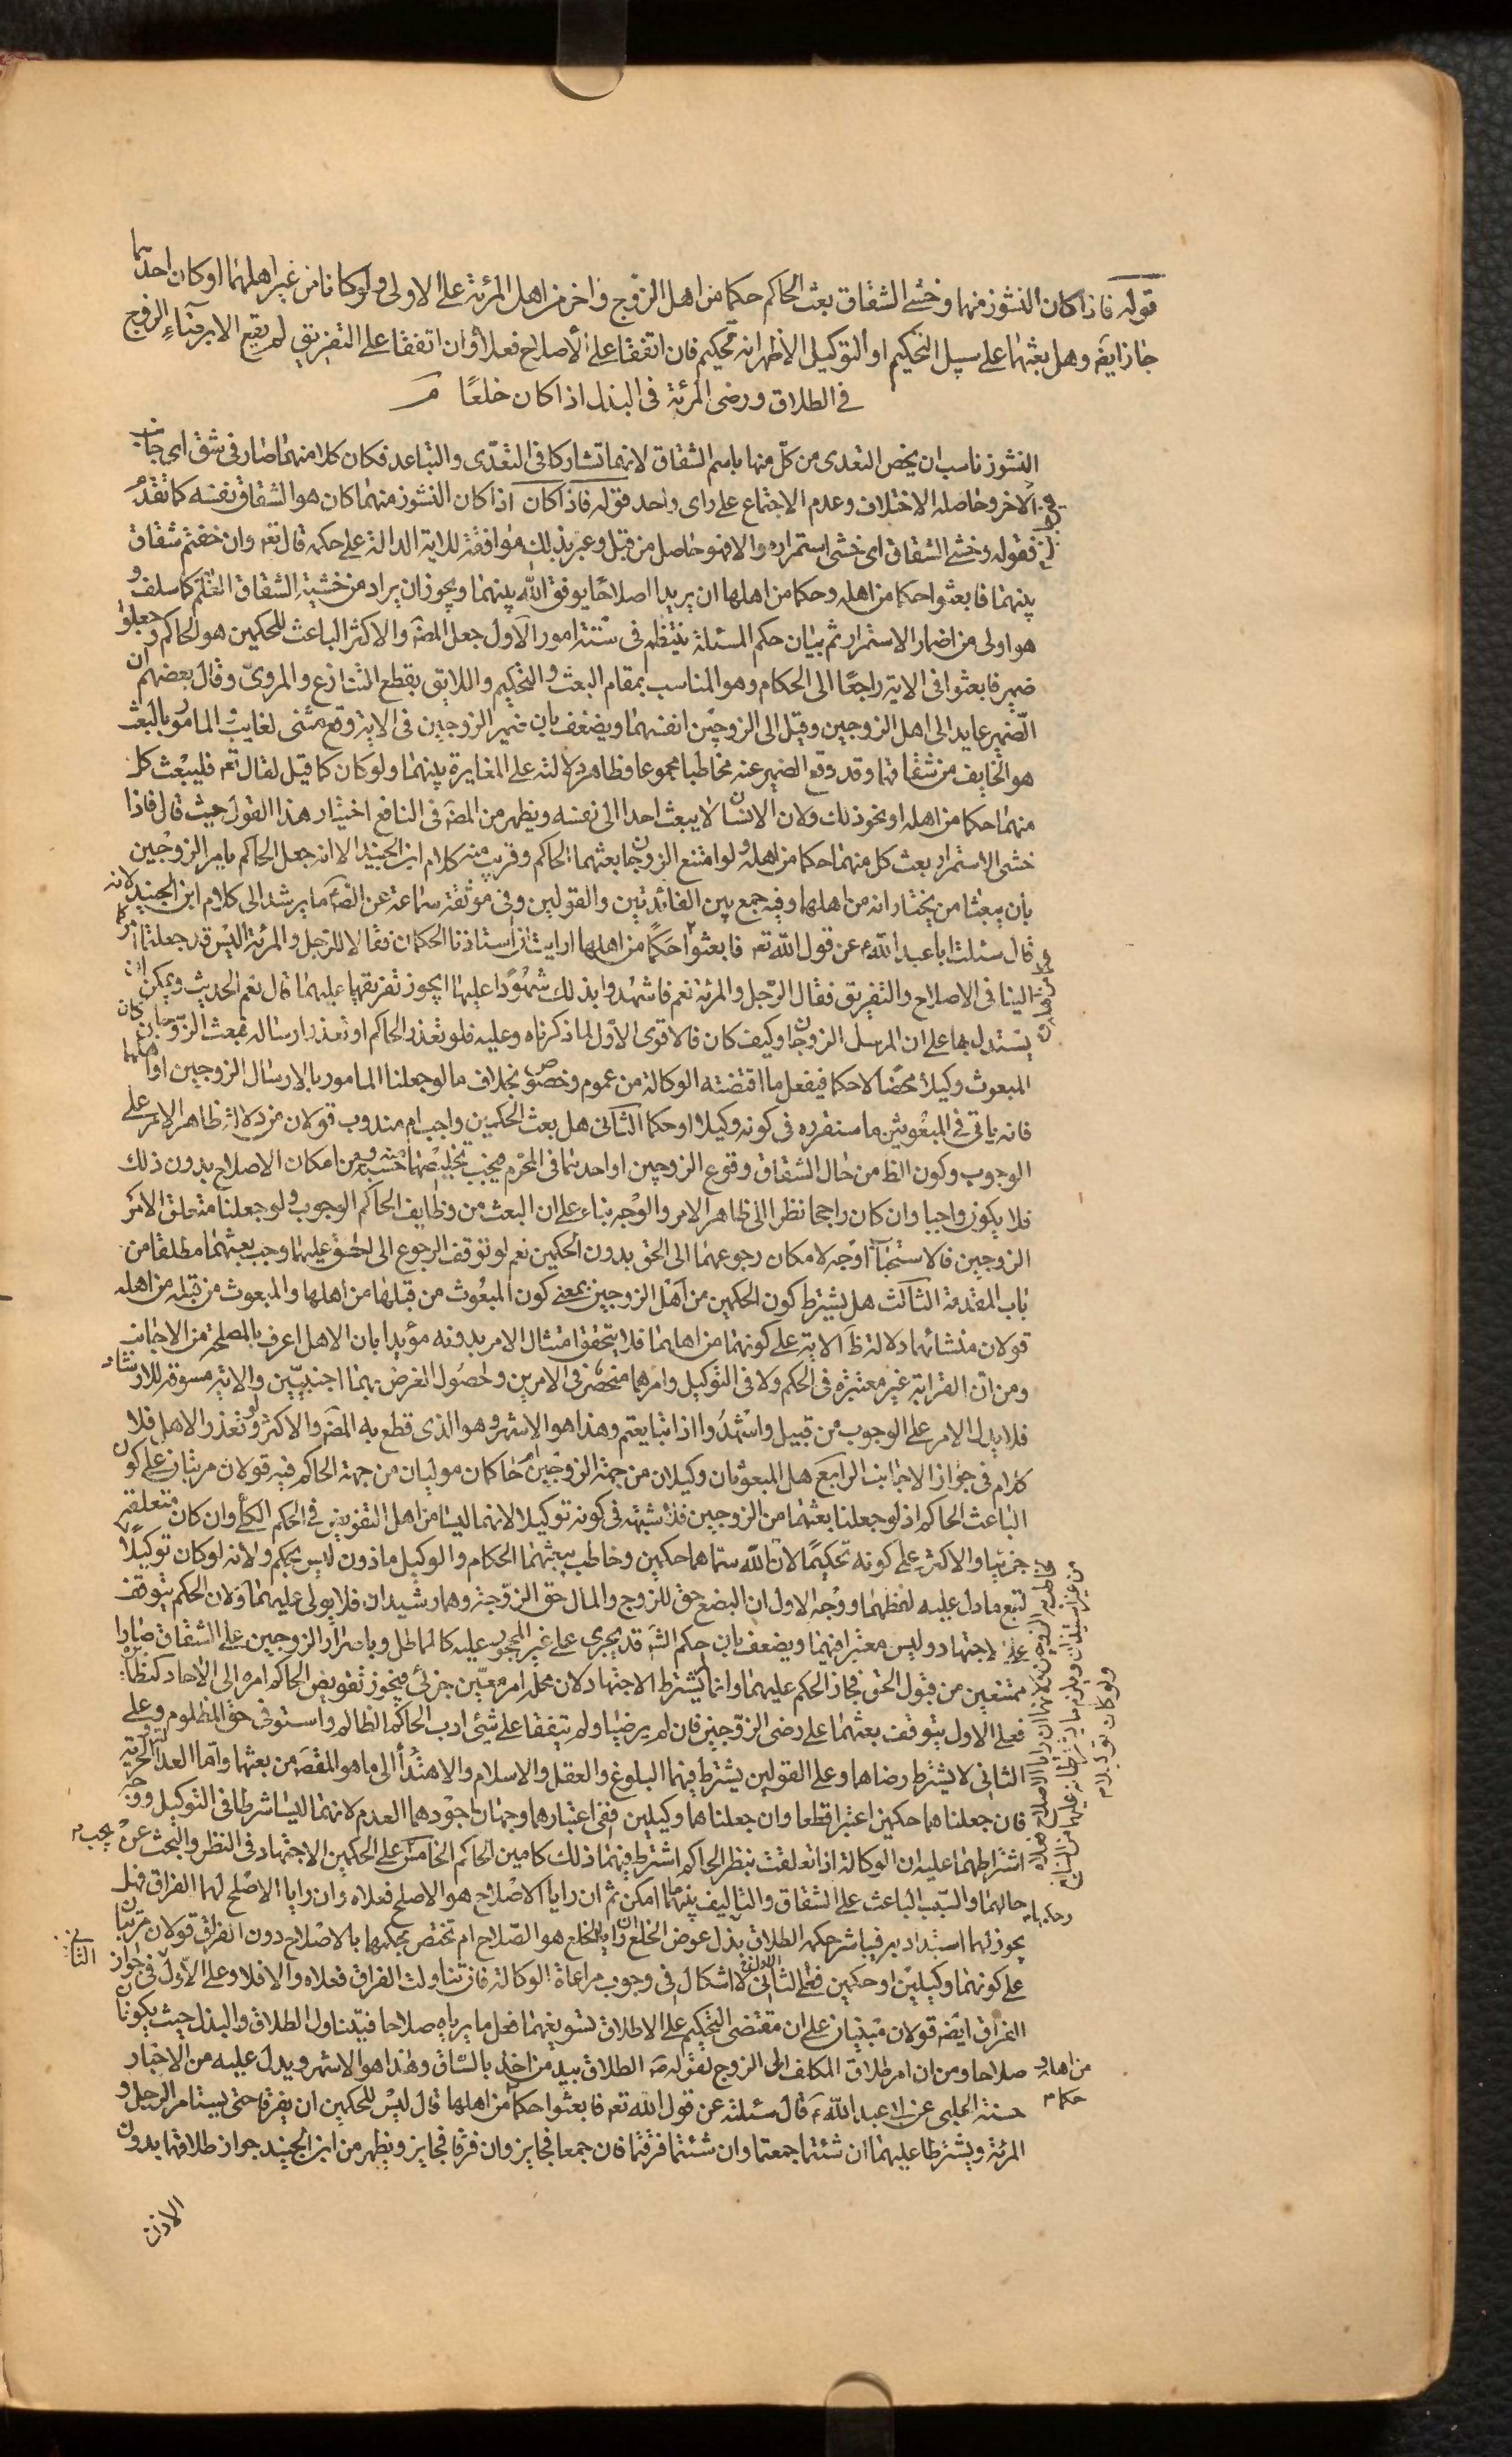 قوله فاذا كان النشوز منهما وخشى الشقاق بعث الحاكم حكما من اهل الزوج واخر من اهل المرئة على الاولى ولو كانا من غير اهلهما او كان احدهما
جاز ايضا وهل بعثهما على سبيل التحكيم او التوكيل الاظهر انه تحكيم فان اتفقا على الاصلاح فعلا وان اتفقا على التفريق لم يقع الا برضاء الزوج
فى الطلاق ورضى المرئة فى البذل اذا كان خلعًا
النشوز ناسب ان يخص التعدى من كلّ منهما باسم الشقاق لانهما تشاركا فى التعدّى والتباعد فكان كلا منهما صار فى شق اى جانب
الاخر وحاصله الاختلاف وعدم الاجتماع على راى واحد قوله فاذا كان اذا كان النشوز منهما كان هو الشقاق نفسه كما تقدم
فقوله وخشى الشقاق اى خشى استمراره والا فهو حاصل من قبل وعبر بذلك موافقة للاية الدالة على حكمه قال تعه وان خفتم شقاق
بينهما فابعثوا حكما من اهله وحكما من اهلها ان يريدا اصلاحًا يوفق الله بينهما ويجوز ان يراد من خشية الشقاق العلم كما سلف و
هو اولى من اضمار الاستمرار ثم بيان حكم المسئلة ينتظم فى ستة امور الاول جعل المصه والاكثر الباعث للحكمين هو الحاكم وجعلوا
ضمير فابعثوا فى الاية راجعًا الى الحكام وهو المناسب بمقام البعث والتحكيم واللايق بقطع التنازع والمروىّ وقال بعضهم ان
الضمير عايد الى اهل الزوجين وقيل الى الزوجين انفسهما ويضعف بان ضمير الزوجين فى الاية وقع مثنى لغايب والمامور بالبعث
هو الخايف من شقاقهما وقد وقع الضمير عنه مخاطبا مجموعا وظاهر دلالته على المغايرة بينهما ولو كان كما قيل لقال تعه فليبعث كل
منهما حكما من اهله او نحو ذلك ولان الانسان لا يبعث احدا الى نفسه ويظهر من المصه فى النافع اختيار هذا القول حيث قال فاذا
خشى الاستمرار بعث كل منهما حكما من اهله ولو امتنع الزوجان بعثهما الحاكم وقريب منه كلام ابن الجنيد الا انه جعل الحاكم يامر الزوجين
بان يبعثا من يختارانه من اهلهما وفيه جمع بين الفائدتين والقولين وفى موثقة سماعة عن الصه ما يرشد الى كلام ابن الجنيد لانه
قال سئلت ابا عبد الله عن قول الله تعه فابعثوا حَكمًا من اهلها ارايت ان استاذنا الحكمان فقالا للرجل والمرئة اليس قد جعلتما امركما
الينا فى الاصلاح والتفريق فقال الرّجل والمرئة نعم فاشهدوا بذلك شهوًدا عليهما ايجوز تفريقهما عليهما قال نعم الحديث ويمكن ان
يستدل بها على ان المرسل الزوجان وكيف كان فالاقوى الاول لما ذكرناه وعليه فلو تعذر الحاكم او تعذر ارساله فبعث الزوجان كان
المبعوث وكيلا محضًا لا حكما فيفعل ما اقتضته الوكالة من عموم وخصوص بخلاف ما لو جعلنا المامور بالارسال الزوجين او اهلهما
فانه ياتى فى المبعوثين ما سنقرره فى كونه وكيلا او حكما الثانى هل بعث الحكمين واجب ام مندوب قولان من دلالة ظاهر الامر على
الوجوب وكون الظ من حال الشقاق وقوع الزوجين او احدهما فى المحرّم فيجب تخليصهما منه حسبة ومن امكان الاصلاح بدون ذلك
فلا يكون واجبا وان كان راجحا نظرا الى ظاهر الامر والوجه بناء على ان البعث من وظايف الحاكم الوجوب ولو جعلنا متعلق الامر
الزوجين فالاستحباب اوجه لامكان رجوعهما الى الحق بدون الحكمين نعم لو توقف الرجوع الى الحق عليهما وجب بعثهما مطلقا من
باب المقدمة الثالث هل يشترط كون الحكمين من اهل الزوجين بمعنى كون المبعوث من قبلها من اهلها والمبعوث من قبله من اهله
قولان منشائهما دلالة ظ الاية على كونهما من اهلهما فلا يتحقق امتثال الامر بدونه مؤيدا بان الاهل اعرف بالمصلحة من الاجانب
ومن ان القرابة غير معتبرة فى الحكم ولا فى التوكيل وامرهما منحصر فى الامرين وحصول الغرض بهما اجنبيّين والاية مسوقة للارشاد
فلا يدل الامر على الوجوب من قبيل واشهدوا اذا تبايعتم وهذا هو الاشهر وهو الذى قطع به المصه والاكثر ولو تعذر الاهل فلا
كلام فى جواز الاجانب الرابع هل المبعوثان وكيلان من جهة الزوجين ام حاكمان موليان من جهة الحاكم فيه قولان مرتبان على كون
الباعث الحاكم اذ لو جعلنا بعثهما من الزوجين فلا شبهة فى كونه توكيلا لانهما ليسا من اهل التفويض فى الحكم الكلى وان كان متعلقه
جزئيا والاكثر على كونه تحكيمًا لان الله سماهما حكمين وخاطب ببعثهما الحكام والوكيل ماذون ليس بحكم ولانه لو كان توكيلا
لتبع ما دل عليه لفظهما ووجه الاول ان البضع حق للزوج والمال حق الزوجة وهما رشيدان فلا يولى عليهما ولان الحكم يتوقف
على الاجتهاد وليس معتبرا فيهما ويضعف بان حكم الشه قد يجرى على غير المحجور عليه كالمماطل وباصرار الزوجين على الشقاق صارا
ممتنعين من قبول الحق فجاز الحكم عليهما وانما لم يشترط الاجتهاد لان محله امر معيّن جزئى فيجوز تفويض الحاكم امره الى الاحاد كنظائره
فعلى الاول يتوقف بعثهما على رضى الزوجين فان لم يرضيا ولم يتفقا على شئ ادب الحاكم الظالم واستوفى حق المظلوم وعلى
الثانى لا يشترط رضاهما وعلى القولين يشترط فيهما البلوغ والعقل والاسلام والاهتداء الى ما هو المقصه من بعثهما واما العدالة والحرية
فان جعلناهما حكمين اعتبرا قطعا وان جعلناهما وكيلين ففى اعتبارهما وجهان اجودهما العدم لانهما ليسا شرطا فى التوكيل ووجه
اشتراطهما عليه ان الوكالة اذا تعلقت بنظر الحاكم اشترط فيهما ذلك كامين الحاكم الخامس على الحكمين الاجتهاد فى النظر والبحث عن
حالهما والسبب الباعث على الشقاق والتاليف بينهما ما امكن ثم ان رايا الاصلاح هو الاصلح فعلاه وان رايا الاصلح لهما الفراق فهل
يجوز لهما استبدادا به فيباشر حكمه الطلاق وبذل عوض الخلع ان رايا الخلع هو الصّلاح ام تختص بحكمهما بالاصلاح دون الفراق قولان مرتبان
على كونهما وكيلين او حكمين فعلى الثانى لا اشكال فى وجوب مراعاة الوكالة فان تناولت الفراق فعلاه والا فلا وعلى الاول فى جواز
الفراق ايضه قولان مبنيان على ان مقتضى التحكيم على الاطلاق تسويغهما فعل ما يرياه صلاحا فيتناول الطلاق والبذل حيث يكونان
صلاحا ومن ان امر طلاق المكلف الى الزوج لقوله ص الطلاق بيد من اخذ بالسّاق وهذا هو الاشهر ويدل عليه من الاخبار
حسنة الحلبى عن ابى عبد الله ع قال سئلته عن قول الله تعه فابعثوا حكما من اهلها قال ليس للحكمين ان يفرقا حتى يستامر الرجل و
المرئة ويشترطا عليهما ان شئنا جمعنا وان شئنا فرقنا فان جمعا فجايز وان فرقا فجايز ويظهر من ابن الجنيد جواز طلاقهما بدون
من اهله و
حكما
الاذن